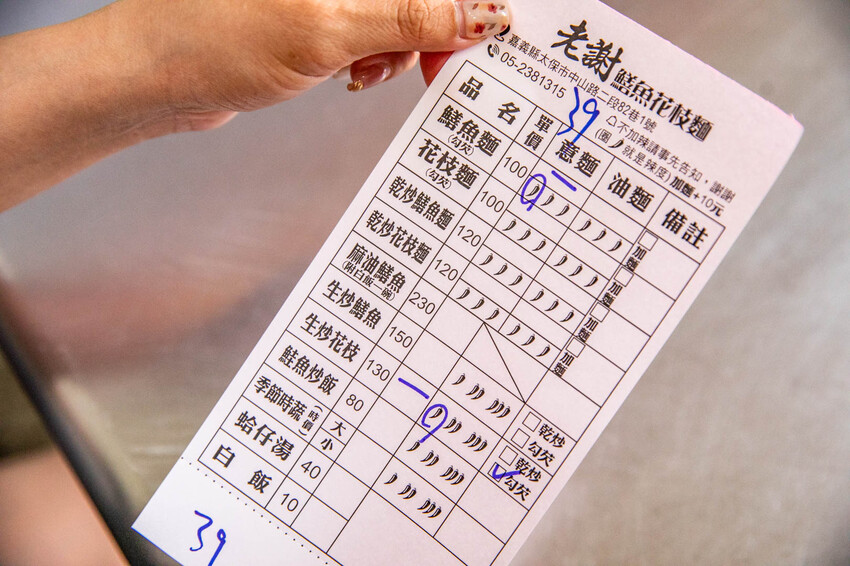 老謝鱔魚花枝麵
嘉義縣太保市中山路二段82巷1號
05-2381315
39
不加辣請事先告知，謝謝
(圈 就是辣度) 加麵+10元
品名 單價 意麵 油麵 備註
鱔魚麵(勾芡) 100 一 加麵
花枝麵(勾芡) 100 加麵
乾炒鱔魚麵 120 加麵
乾炒花枝麵 120 加麵
麻油鱔魚(附白飯一碗) 230
生炒鱔魚 150 乾炒 勾芡
生炒花枝 130 一 乾炒 ✓勾芡
鮭魚炒飯 80
季節時蔬(時價) 大 小
蛤仔湯 40
白飯 10
39